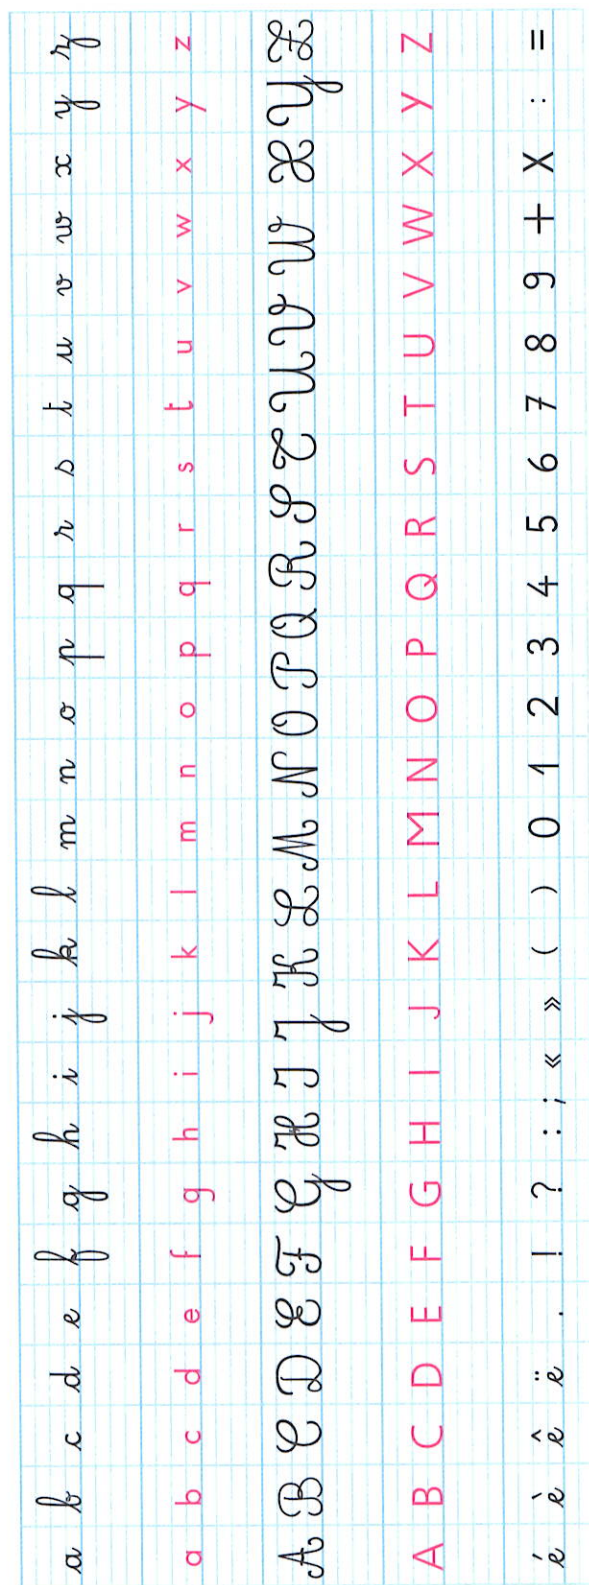 a b c d e f g h i j k l m n o p q r s t u v w x y z
a b c d e f g h i j k l m n o p q r s t u v w x y z
A B C D E F G H I J K L M N O P Q R S T U V W X Y Z
A B C D E F G H I J K L M N O P Q R S T U V W X Y Z
é è ê ë . ! ? : ; « » ( ) 0 1 2 3 4 5 6 7 8 9 + X : =